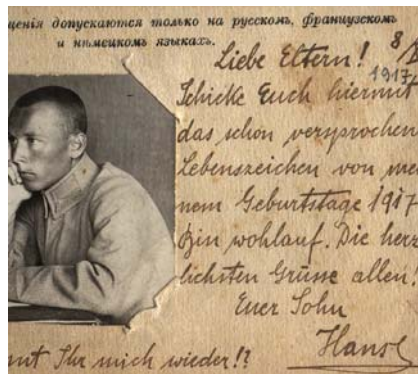 щенія допускаются только на русскомъ, французскомъ
и нѣмецкомъ языкахъ.
8/
1917
Liebe Eltern!
Schicke Euch hiermit
das schon versprochen
Lebenszeichen von mei
nem Geburtstage 1917
Bin wohlauf. Die herz
lichsten Grüsse allen.
Euer Sohn
Hansl
nnt Ihr mich wieder!?